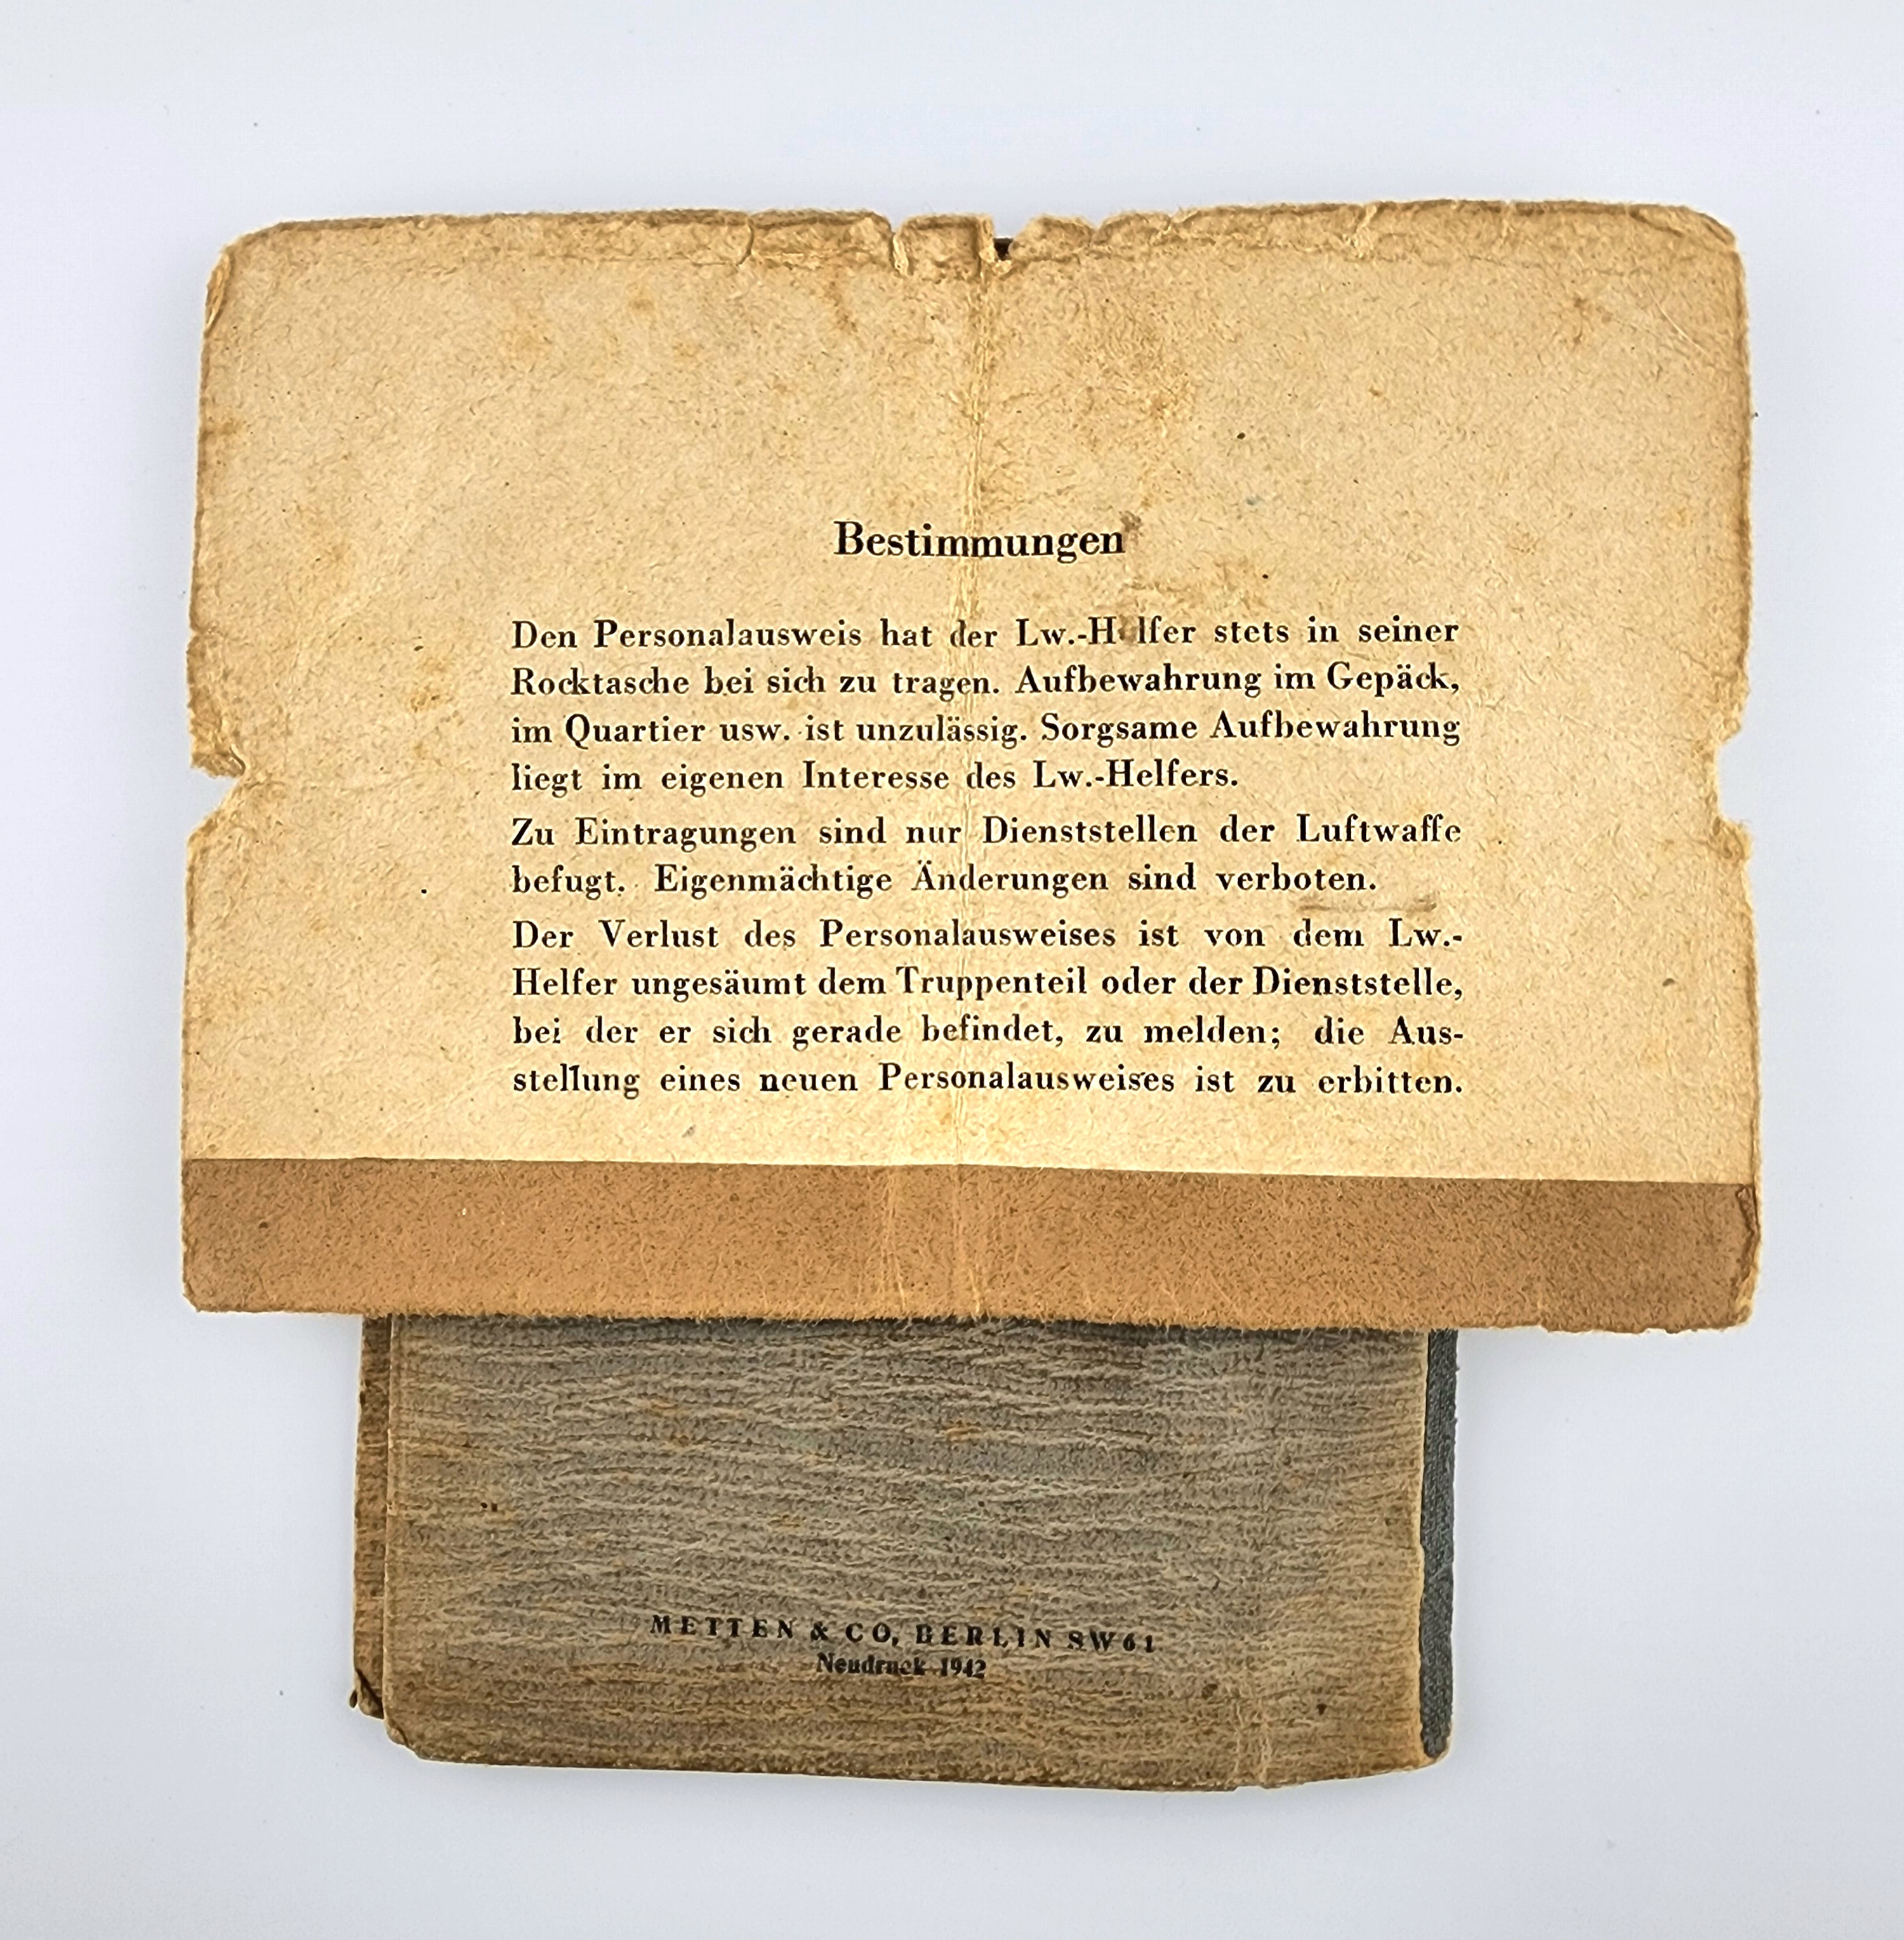 Bestimmungen
Den Personalausweis hat der Lw.-Helfer stets in seiner
Rocktasche bei sich zu tragen. Aufbewahrung im Gepäck,
im Quartier usw. ist unzulässig. Sorgsame Aufbewahrung
liegt im eigenen Interesse des Lw.-Helfers.
Zu Eintragungen sind nur Dienststellen der Luftwaffe
befugt. Eigenmächtige Änderungen sind verboten.
Der Verlust des Personalausweises ist von dem Lw.-
Helfer ungesäumt dem Truppenteil oder der Dienststelle,
bei der er sich gerade befindet, zu melden; die Aus-
stellung eines neuen Personalausweises ist zu erbitten.
METTEN & CO, BERLIN SW 61
Neudruck 1942